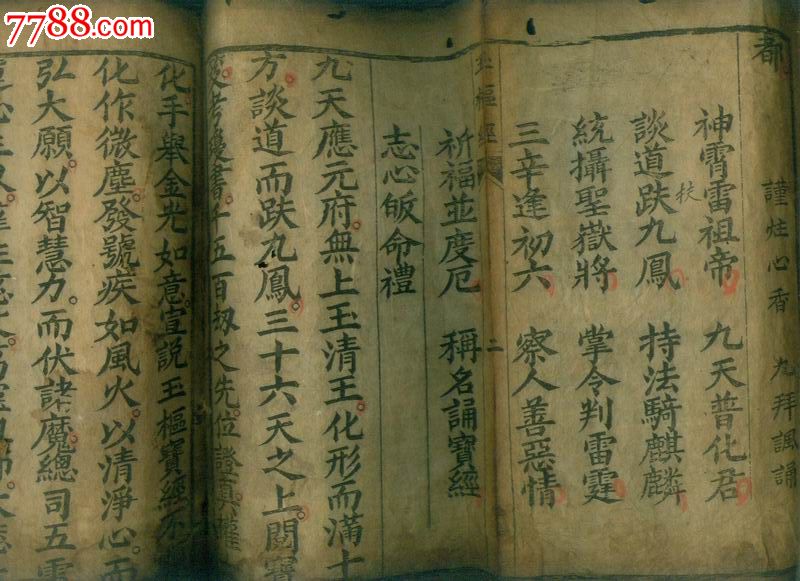 7788.com
都
謹炷心香 九拜諷誦
神霄雷祖帝 九天普化君
談道趺九鳳 持法騎麒麟
統攝聖嶽將 掌令判雷霆
三辛逢初六 察人善惡情
祈福並度厄 稱名誦寶經
樞經 二
志心皈命禮
九天應元府。無上玉清王。化形而滿十
方。談道而趺九鳳。三十六天之上。閱寶
考瓊書。千五百劫之先。位證真權
化。手舉金光如意。宣說玉樞寶經。不
化作微塵。發號疾如風火。以清淨心。而
弘大願。以智慧力。而伏諸魔。總司五雷